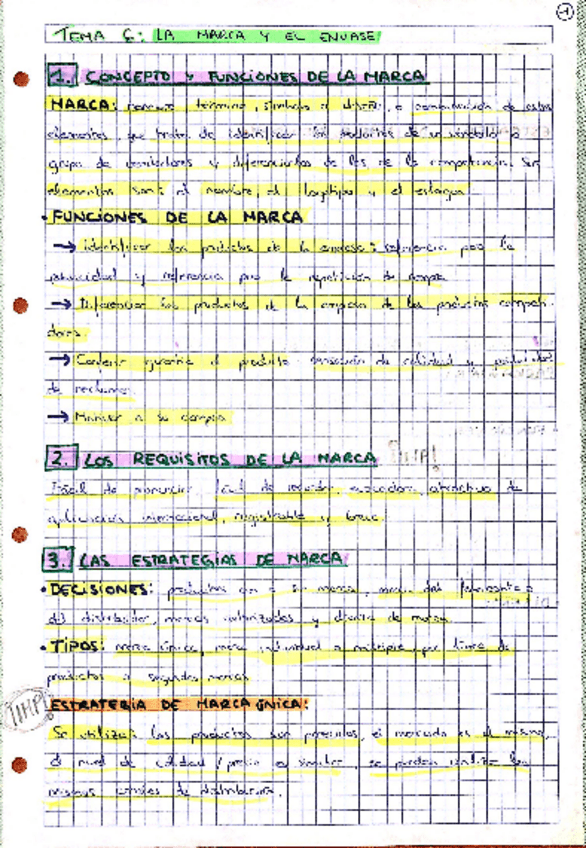 1
TEMA 6: LA MARCA Y EL ENVASE
1. CONCEPTO Y FUNCIONES DE LA MARCA
MARCA: nombre, término, símbolo o diseño, o combinación de estos
elementos, que trata de identificar los productos de un vendedor o
grupo de vendedores y diferenciarlos de los de la competencia. Sus
elementos son: el nombre, el logotipo y el eslogan
• FUNCIONES DE LA MARCA
→ Identificar los productos de la empresa: referencia para la
publicidad y referencia para la repetición de compra
→ Diferenciar los productos de la empresa de los productos competi-
dores
→ Conferir garantía al producto: sensación de calidad y posibilidad
de reclamo
→ Marcar a su
2. LOS REQUISITOS DE LA MARCA ¡IMP!
Fácil de pronunciar, fácil de recordar, evocadora, atractiva de
aplicación internacional, registrable y breve
3. LAS ESTRATEGIAS DE MARCA
• DECISIONES: productos con o sin marca, marca del fabricante o
del distribuidor, marcas autorizadas y diseño de marca
• TIPOS: marca única, marca individual o múltiple, por línea de
productos y segundas marcas
¡IMP! ESTRATEGIA DE MARCA ÚNICA:
Se utiliza si los productos son parecidos, el mercado es el mismo,
el nivel de calidad / precio es similar, se pueden utilizar los
mismos canales de distribución.